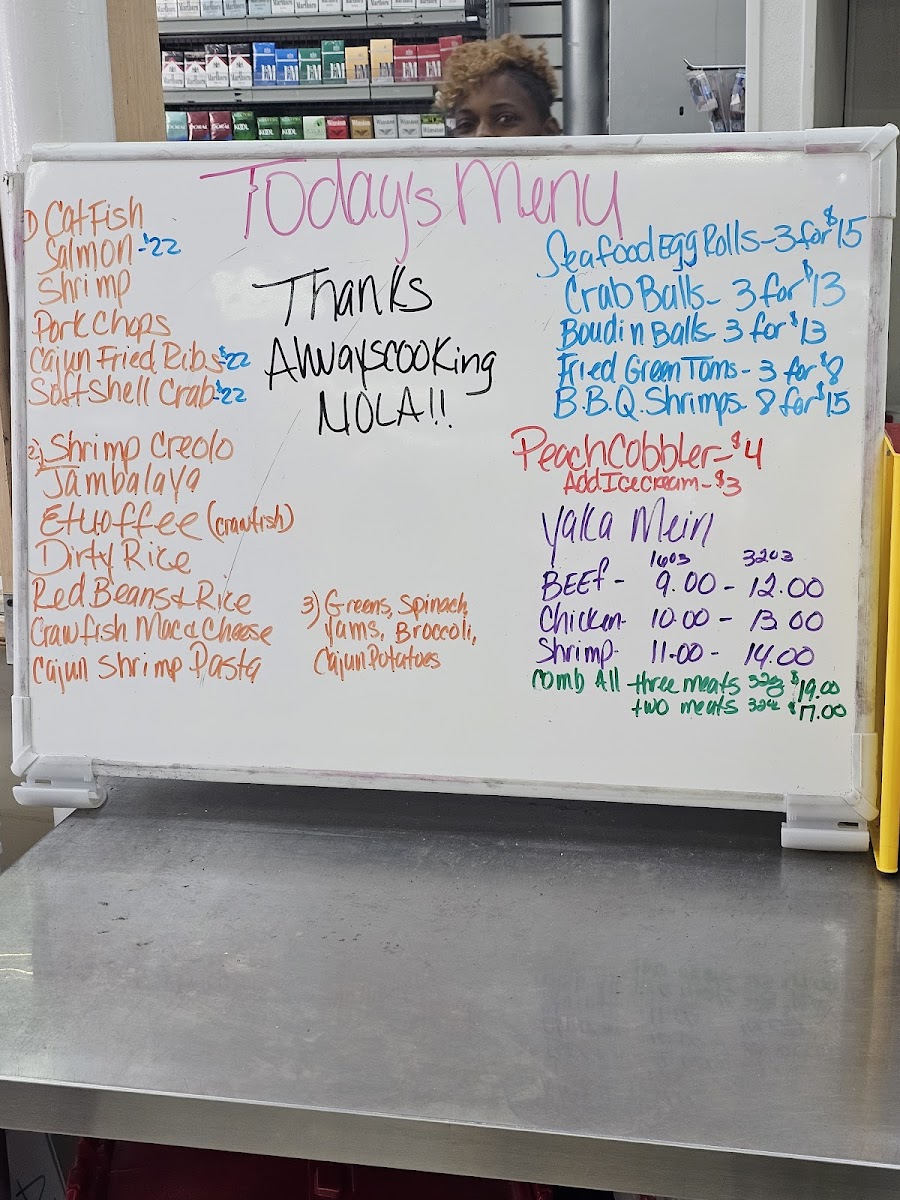 Today's Menu
1) CatFish
Salmon - $22
Shrimp
Pork Chops
Cajun Fried Ribs $22
Soft Shell Crab - $22
2) Shrimp Creolo
Jambalaya
Etuoffee (crawfish)
Dirty Rice
Red Beans & Rice
Crawfish Mac & Cheese
Cajun Shrimp Pasta
Thanks
Alwayscooking
NOLA!!
3) Greens, Spinach,
Yams, Broccoli,
Cajun Potatoes
Seafood Egg Rolls - 3 for $15
Crab Balls - 3 for $13
Boudin Balls - 3 for $13
Fried Green Toms - 3 for $8
B.B.Q. Shrimps - 8 for $15
Peach Cobbler - $4
Add Icecream - $3
Yaka Mein
16oz 32oz
BEEf - 9.00 - 12.00
Chicken - 10.00 - 13.00
Shrimp - 11.00 - 14.00
Comb All three meats 32oz $19.00
two meats 32oz $17.00
Marlboro
L&M
Winston
KOOL